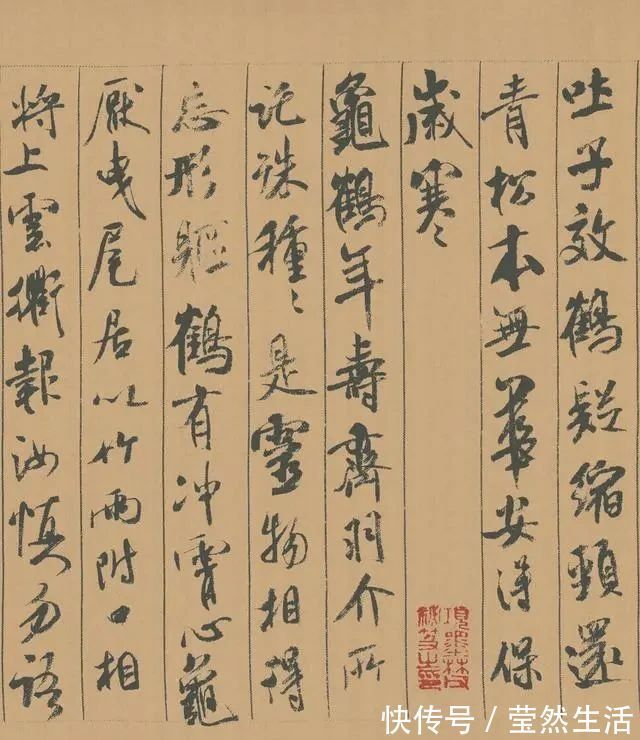 吐子效鶴疑縮頸還
青松本無華安得保
歲寒〻
龜鶴年壽齊羽介所
託殊種〻是靈物相得
忘形軀鶴有冲霄心龜
厭曳尾居以竹兩附口相
將上雲衢報汝慎勿語
快传号／莹然生活